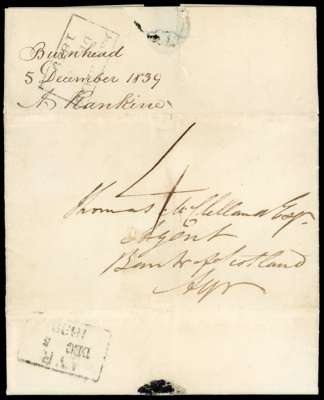 Burnhead
5 December 1839
A Rankine
4
Thomas McClelland Esqr.
Agent
Bank of Scotland
Ayr
AYR
DEC 5
1839